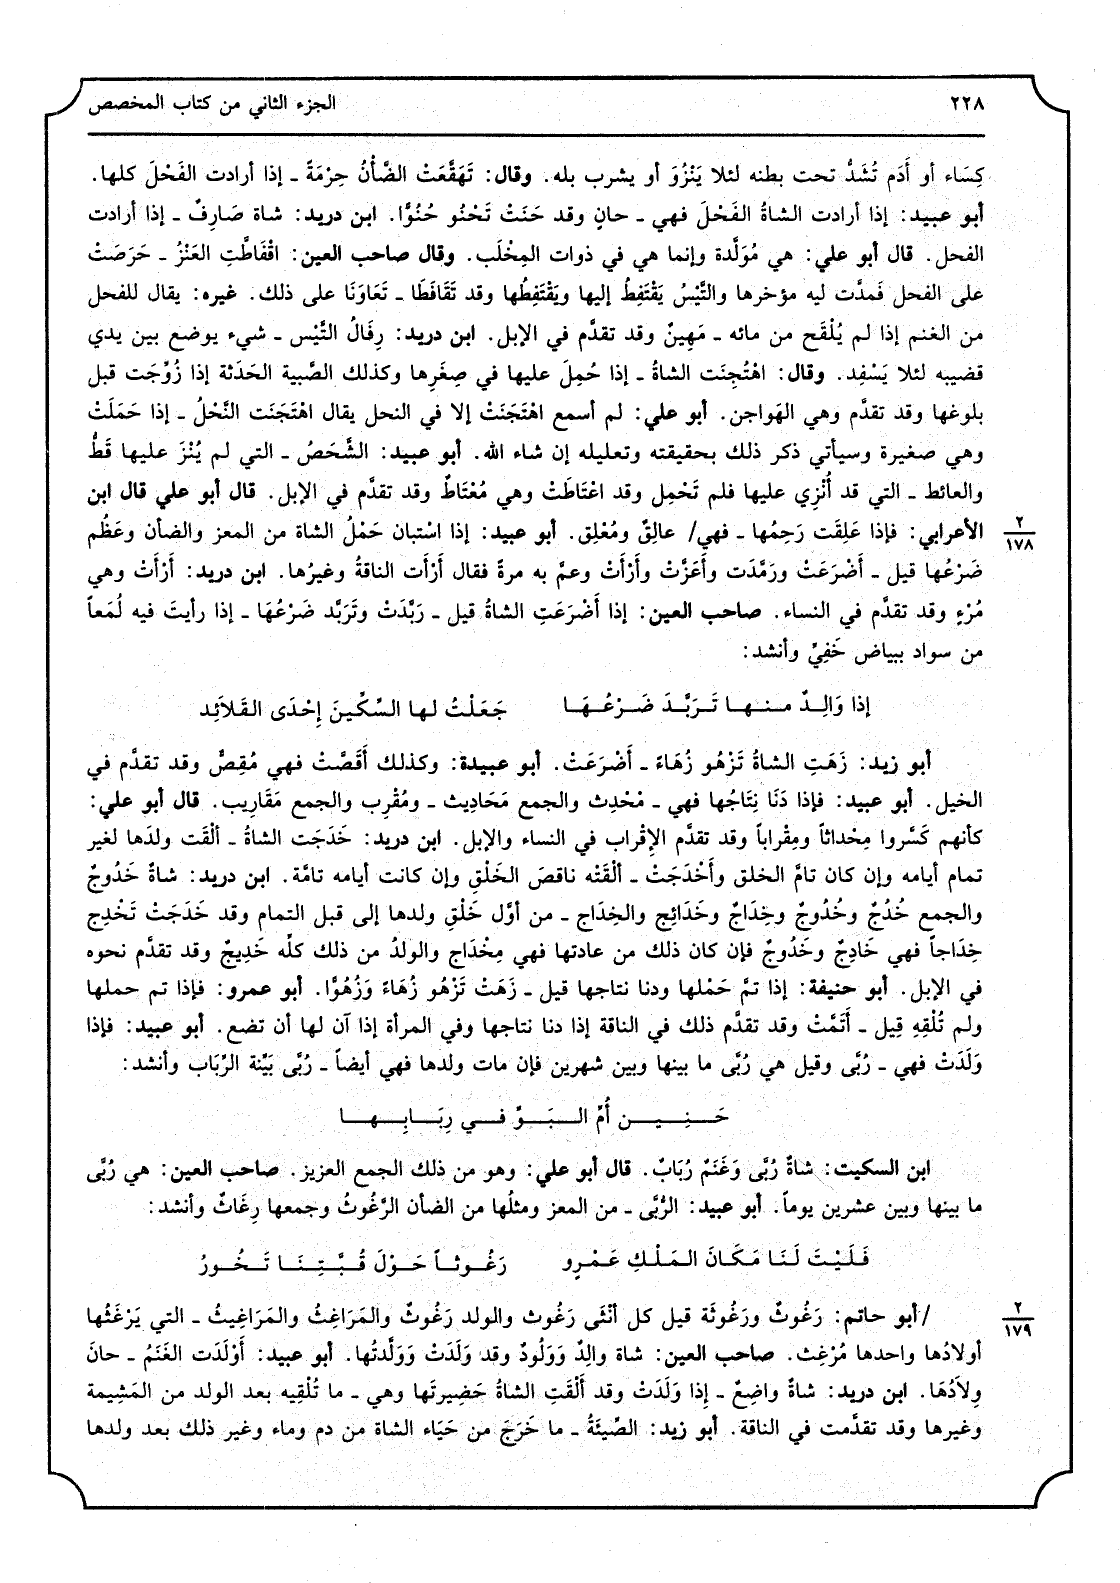 ٢٢٨ الجزء الثاني من كتاب المخصص
كِسَاء أو أَدَم تُشَدُّ تحت بطنه لئلا يَنْزُوَ أو يشرب بله. وقال: تَهَقَّعَتْ الضَّأْنُ حِرْمَةً ـ إذا أرادت الفَحْلَ كلها.
أبو عبيد: إذا أرادت الشاةُ الفَحْلَ فهي ـ حانٍ وقد حَنَتْ تَحْنُو حُنُوًّا. ابن دريد: شاة صَارِفٌ ـ إذا أرادت
الفحل. قال أبو علي: هي مُوَلَّدة وإنما هي في ذوات المِخْلَب. وقال صاحب العين: اقْفَاطَّتِ العَنْزُ ـ حَرَصَتْ
على الفحل فَمدَّت ليه مؤخرها والتَّيْسُ يَقْتَفِطُ إليها ويَقْتَفِطُها وقد تَقَافَطَا ـ تَعَاوَنَا على ذلك. غيره: يقال للفحل
من الغنم إذا لم يُلْقَح من مائه ـ مَهِينٌ وقد تقدَّم في الإبل. ابن دريد: رِفَالُ التَّيْس ـ شيء يوضع بين يدي
قضيبه لئلا يَسْفِد. وقال: اهْتُجِنَت الشاةُ ـ إذا حُمِلَ عليها في صِغَرِها وكذلك الصَّبية الحَدَثة إذا زُوِّجَت قبل
بلوغها وقد تقدَّم وهي الهَواجن. أبو علي: لم أسمع اهْتَجَنَتْ إلا في النحل يقال اهْتَجَنَت النَّحْلُ ـ إذا حَمَلَتْ
وهي صغيرة وسيأتي ذكر ذلك بحقيقته وتعليله إن شاء الله. أبو عبيد: الشَّحَصُ ـ التي لم يُنْزَ عليها قَطُّ
والعائط ـ التي قد أُنْزِي عليها فلم تَحْمِل وقد اعْتَاطَتْ وهي مُعْتَاطٌ وقد تقدَّم في الإبل. قال أبو علي قال ابن
الأعرابي: فإذا عَلِقَت رَحِمُها ـ فهي/ عالِقٌ ومُعْلِق. أبو عبيد: إذا اسْتبان حَمْلُ الشاة من المعز والضأن وعَظُم
٢
١٧٨
ضَرْعُها قيل ـ أَضْرَعَتْ ورَمَّدَت وأَعَزَّتْ وأَرْأَتْ وعمَّ به مرةً فقال أَرْأَت الناقةُ وغيرُها. ابن دريد: أَرْأَتْ وهي
مُرْءٍ وقد تقدَّم في النساء. صاحب العين: إذا أَضْرَعَتِ الشاةُ قيل ـ رَبَّدَتْ وتَرَبَّد ضَرْعُهَا ـ إذا رأيتَ فيه لُمَعاً
من سواد ببياض خَفِيٍّ وأنشد:
إذا وَالِـدٌ مـنـهـا تَـرَبَّـدَ ضَـرْعُـهَـا جَعَلْتُ لها السِّكِّينَ إِحْدَى القَلاَئد
أبو زيد: زَهَتِ الشاةُ تَزْهُو زُهَاءً ـ أَضْرَعَتْ. أبو عبيدة: وكذلك أَقَصَّتْ فهي مُقِصٌّ وقد تقدَّم في
الخيل. أبو عبيد: فإذا دَنَا نِتَاجُها فهي ـ مْحْدِث والجمع مَحَادِيث ـ ومُقْرِب والجمع مَقَارِيب. قال أبو علي:
كأنهم كَسَّروا مِحْداثاً ومِقْراباً وقد تقدَّم الإِقْراب في النساء والإبل. ابن دريد: خَدَجَت الشاةُ ـ أَلْقَت ولدَها لغير
تمام أيامه وإن كان تامَّ الخلق وأَخْدَجَتْ ـ أَلْقَتْه ناقصَ الخَلْقِ وإن كانت أيامه تامَّة. ابن دريد: شاةٌ خَدُوجٌ
والجمع خُدُجٌ وخُدُوجٌ وخِدَاجٌ وخَدَائِج والخِدَاج ـ من أوَّل خَلْقِ ولدها إلى قبل التمام وقد خَدَجَتْ تَخْدِج
خِدَاجاً فهي خَادِجٌ وخَدُوجٌ فإن كان ذلك من عادتها فهي مِخْدَاج والولدُ من ذلك كلِّه خَدِيجٌ وقد تقدَّم نحوه
في الإبل. أبو حنيفة: إذا تمَّ حَمْلها ودنا نتاجها قيل ـ زَهَتْ تَزْهُو زُهَاءً وَزُهُوًّا. أبو عمرو: فإذا تم حملها
ولم تُلْقِهِ قِيل ـ أَتَمَّتْ وقد تقدَّم ذلك في الناقة إذا دنا نتاجها وفي المرأة إذا آن لها أن تضع. أبو عبيد: فإذا
وَلَدَتْ فهي ـ رُبَّى وقيل هي رُبَّى ما بينها وبين شهرين فإن مات ولدها فهي أيضاً ـ رُبَّى بَيِّنة الرِّبَاب وأنشد:
حَـنِـيـن أُمِّ الـبَـوِّ فـي رِبَـابِـهـا
ابن السكيت: شاةٌ رُبَّى وَغَنَمٌ رُبَابٌ. قال أبو علي: وهو من ذلك الجمع العزيز. صاحب العين: هي رُبَّى
ما بينها وبين عشرين يوماً. أبو عبيد: الرُّبَّى ـ من المعز ومثلُها من الضأن الرَّغُوثُ وجمعها رِغَاثٌ وأنشد:
فَـلَـيْـتَ لَـنَـا مَـكَـانَ الـمَـلْـكِ عَـمْـرٍو رَغُـوثـاً حَـوْلَ قُـبَّـتِـنَـا تَـخُـورُ
/أبو حاتم: رَغُوثٌ ورَغُوثَة قيل كل أنْثَى رَغُوث والولد رَغُوثٌ والمَرَاغِثُ والمَرَاغِيثُ ـ التي يَرْغَثُها
٢
١٧٩
أولادُها واحدها مُرْغِث. صاحب العين: شاة والِدٌ وَوَلُودٌ وقد وَلَدَتْ وَوَلَّدتُها. أبو عبيد: أَوْلَدَت الغَنَمُ ـ حانَ
وِلاَدُهَا. ابن دريد: شاةٌ واضِعٌ ـ إِذا وَلَدَتْ وقد أَلْقَتِ الشاةُ حَضِيرتَها وهي ـ ما تُلْقِيه بعد الولد من المَشِيمة
وغيرها وقد تقدَّمت في الناقة. أبو زيد: الصِّيئَةُ ـ ما خَرَجَ من حَيَاء الشاة من دم وماء وغير ذلك بعد ولدها